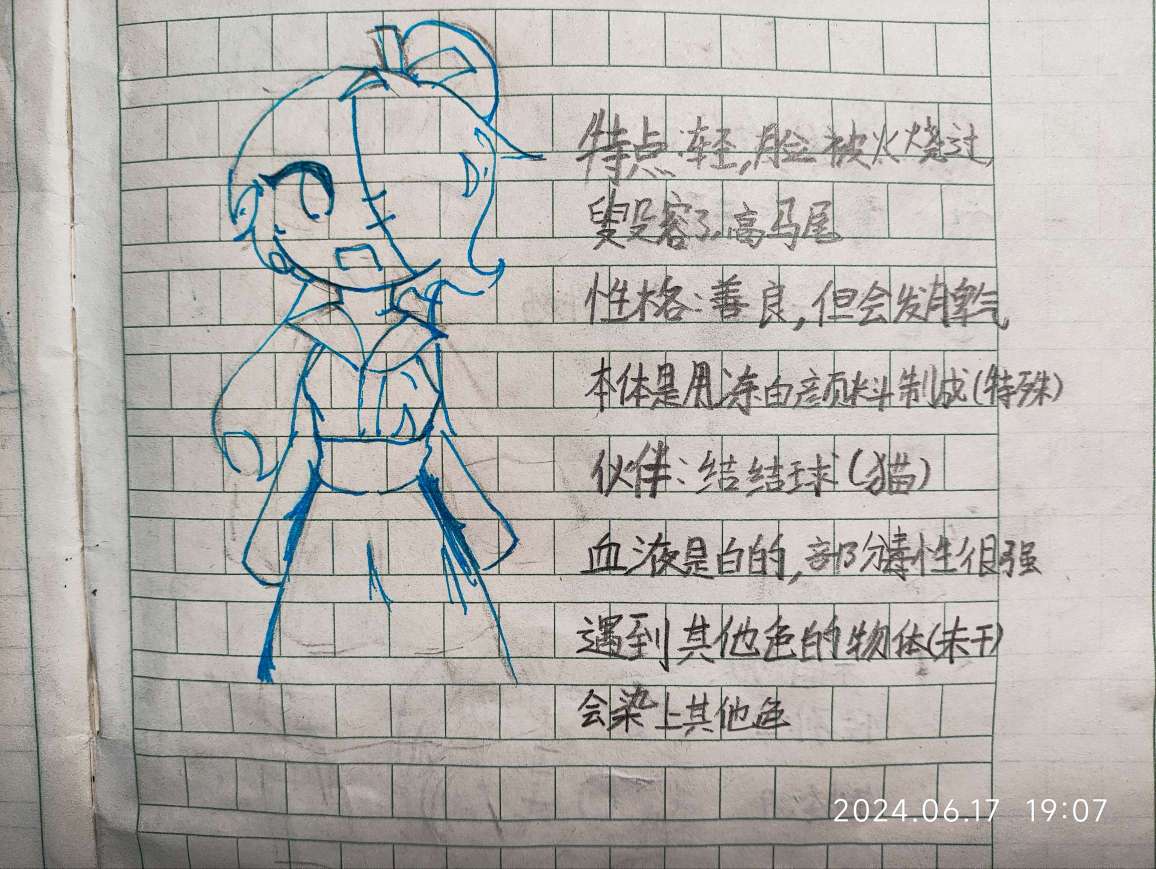 特点:轻,脸被火烧过
毁容了,高马尾
性格:善良,但会发脾气
本体是用冻白颜料制成(特殊)
伙伴:结结球(猫)
血液是白的,部分毒性很强
遇到其他色的物体(未干)
会染上其他色
2024.06.17 19:07